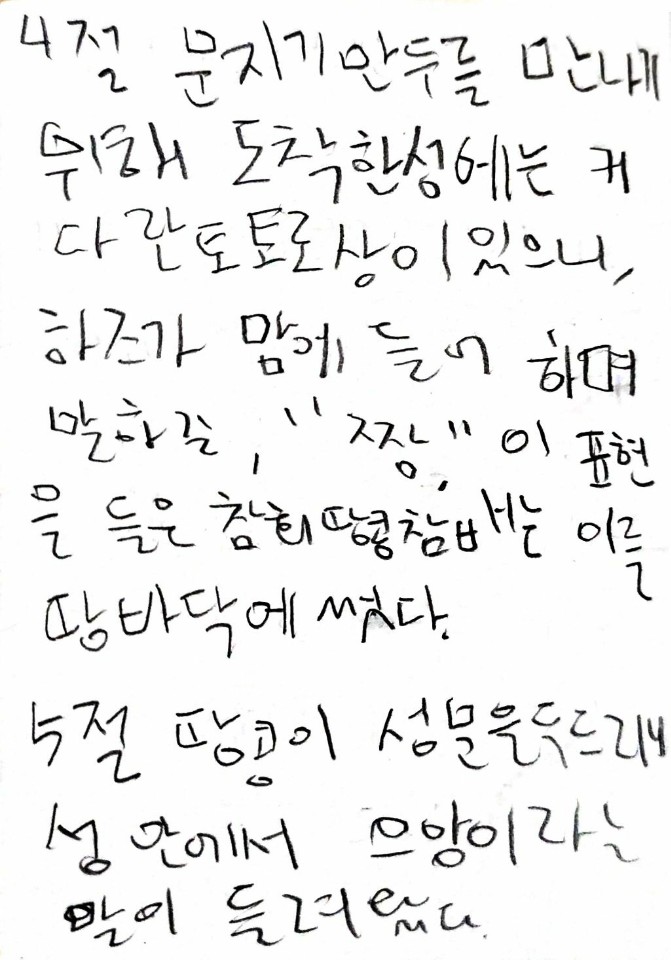 4절 문지기만두를 만나기
위해 도착한성에는 커
다란토토로상이 있으니,
하즈가 맘에 들어 하며
말하길, "짱," 이 표현
을 들은 참회땅콩참빠는 이를
땅바닥에 썼다.
5절 땅콩이 성문을두드리매
성 안에서 므앙이라는
말이 들려왔다.